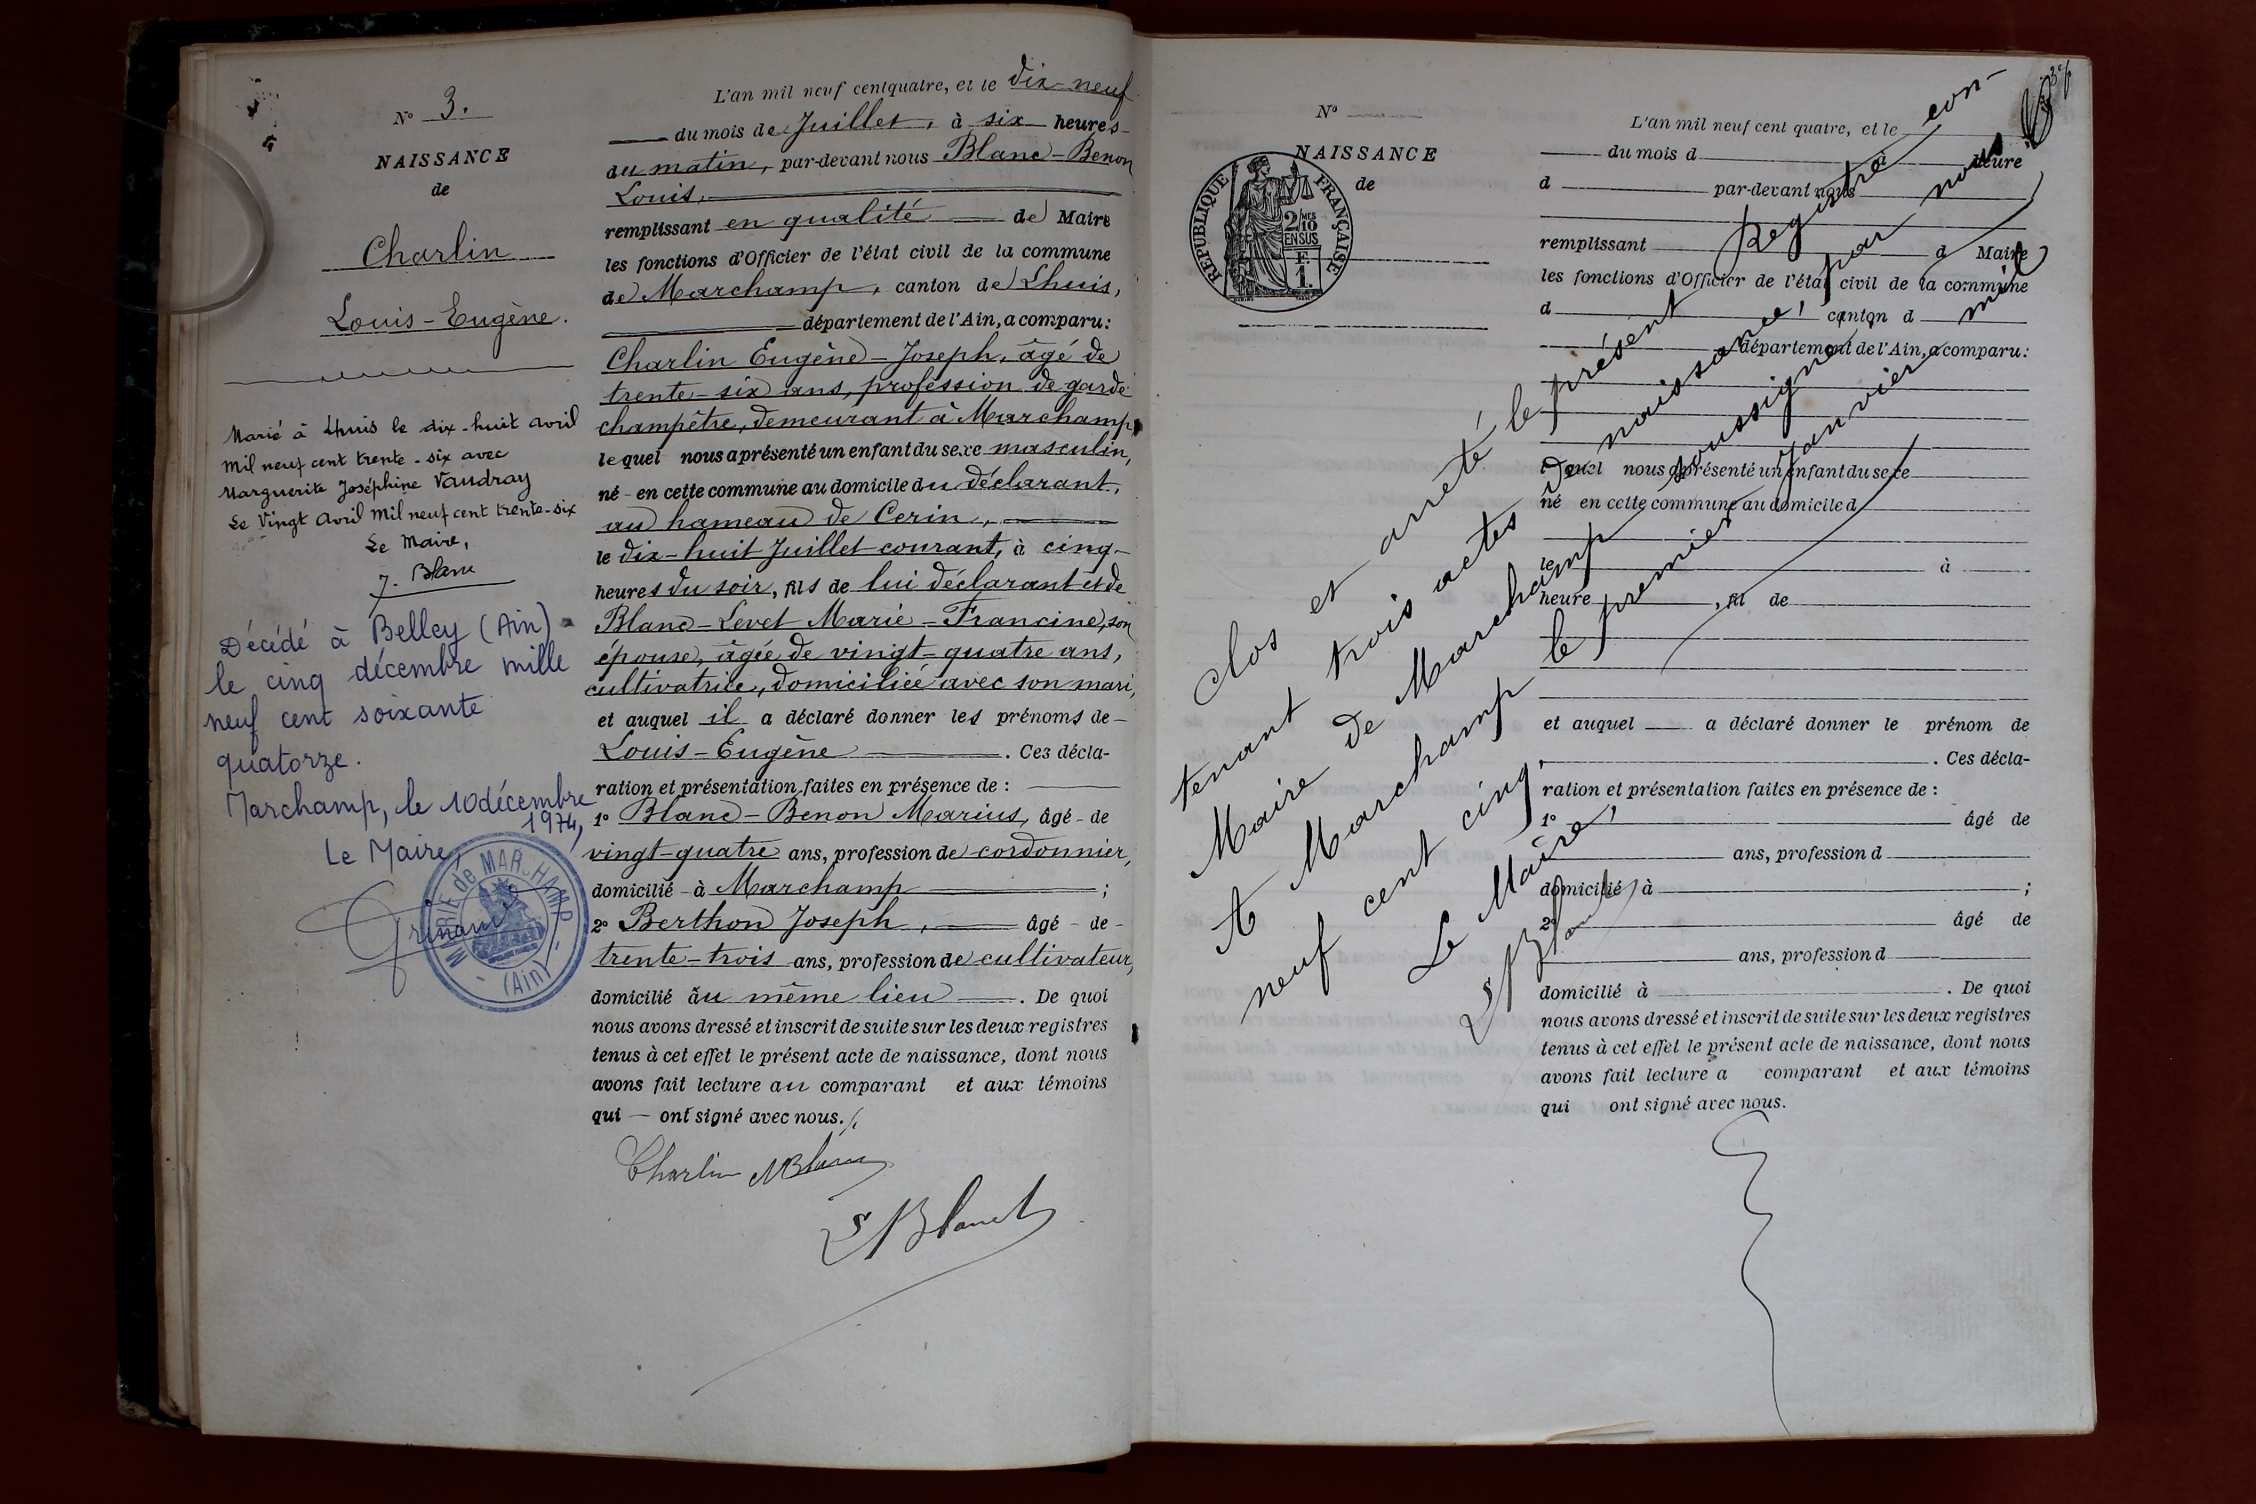 N° 3.
NAISSANCE
de
Charlin
Louis-Eugène.
Marié à Lhuis le dix-huit avril
mil neuf cent trente-six avec
Marguerite Joséphine Vaudray
Le Vingt avril mil neuf cent trente-six
Le Maire,
J. Blanc
Décédé à Belley (Ain)
le cinq décembre mille
neuf cent soixante
quatorze.
Marchamp, le 10 décembre
1974,
Le Maire,
MAIRIE de MARCHAMP
(Ain)
L'an mil neuf cent quatre, et le dix-neuf
du mois de Juillet, à six heures
du matin, par-devant nous Blanc-Benon
Louis,
remplissant en qualité de Maire
les fonctions d'Officier de l'état civil de la commune
de Marchamp, canton de Lhuis,
département de l'Ain, a comparu:
Charlin Eugène-Joseph, âgé de
trente-six ans, profession de garde
champêtre, demeurant à Marchamp,
lequel nous a présenté un enfant du sexe masculin,
né en cette commune au domicile du déclarant,
au hameau de Cerin,
le dix-huit Juillet courant, à cinq
heures du soir, fils de lui déclarant et de
Blanc-Levet Marie-Francine, son
épouse, âgée de vingt-quatre ans,
cultivatrice, domiciliée avec son mari,
et auquel il a déclaré donner les prénoms de
Louis-Eugène. Ces décla-
ration et présentation faites en présence de :
1° Blanc-Benon Marius, âgé de
vingt-quatre ans, profession de cordonnier,
domicilié à Marchamp ;
2° Berthon Joseph, âgé de
trente-trois ans, profession de cultivateur,
domicilié au même lieu. De quoi
nous avons dressé et inscrit de suite sur les deux registres
tenus à cet effet le présent acte de naissance, dont nous
avons fait lecture au comparant et aux témoins
qui ont signé avec nous.
Charlin
N°
NAISSANCE
de
RÉPUBLIQUE FRANÇAISE
2/10 MES
EN SUS
F.
1.
L'an mil neuf cent quatre, et le
du mois d à heure
d par-devant nous
remplissant d Maire
les fonctions d'Officier de l'état civil de la commune
d canton d
département de l'Ain, a comparu:
lequel nous a présenté un enfant du sexe
né en cette commune au domicile d
le à
heure , fil de
et auquel a déclaré donner le prénom de
. Ces décla-
ration et présentation faites en présence de :
1° âgé de
ans, profession d
domicilié à ;
2° âgé de
ans, profession d
domicilié à . De quoi
nous avons dressé et inscrit de suite sur les deux registres
tenus à cet effet le présent acte de naissance, dont nous
avons fait lecture a comparant et aux témoins
qui ont signé avec nous.
Clos et arrêté le présent Registre con-
tenant trois actes de naissance, par nous
Maire de Marchamp soussigné
A Marchamp le premier Janvier mil
neuf cent cinq.
Le Maire,